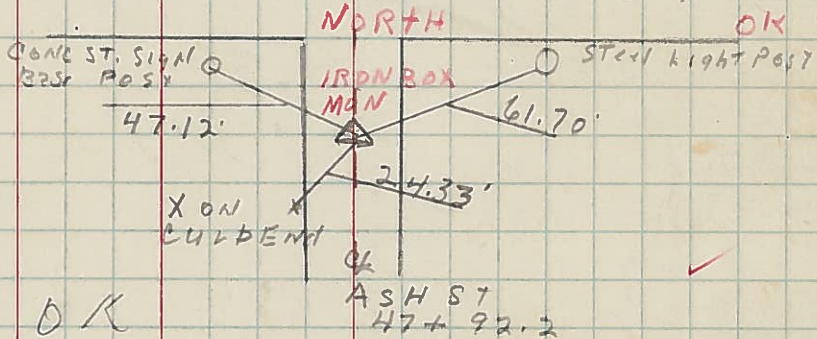 NORTH
OK
CONC ST. SIGN
BASE POST
STEEL LIGHT POST
IRON BOX
MON
47.12'
61.70'
24.33'
X ON
CUL DEND
CL
ASH ST
47+92.2
OK